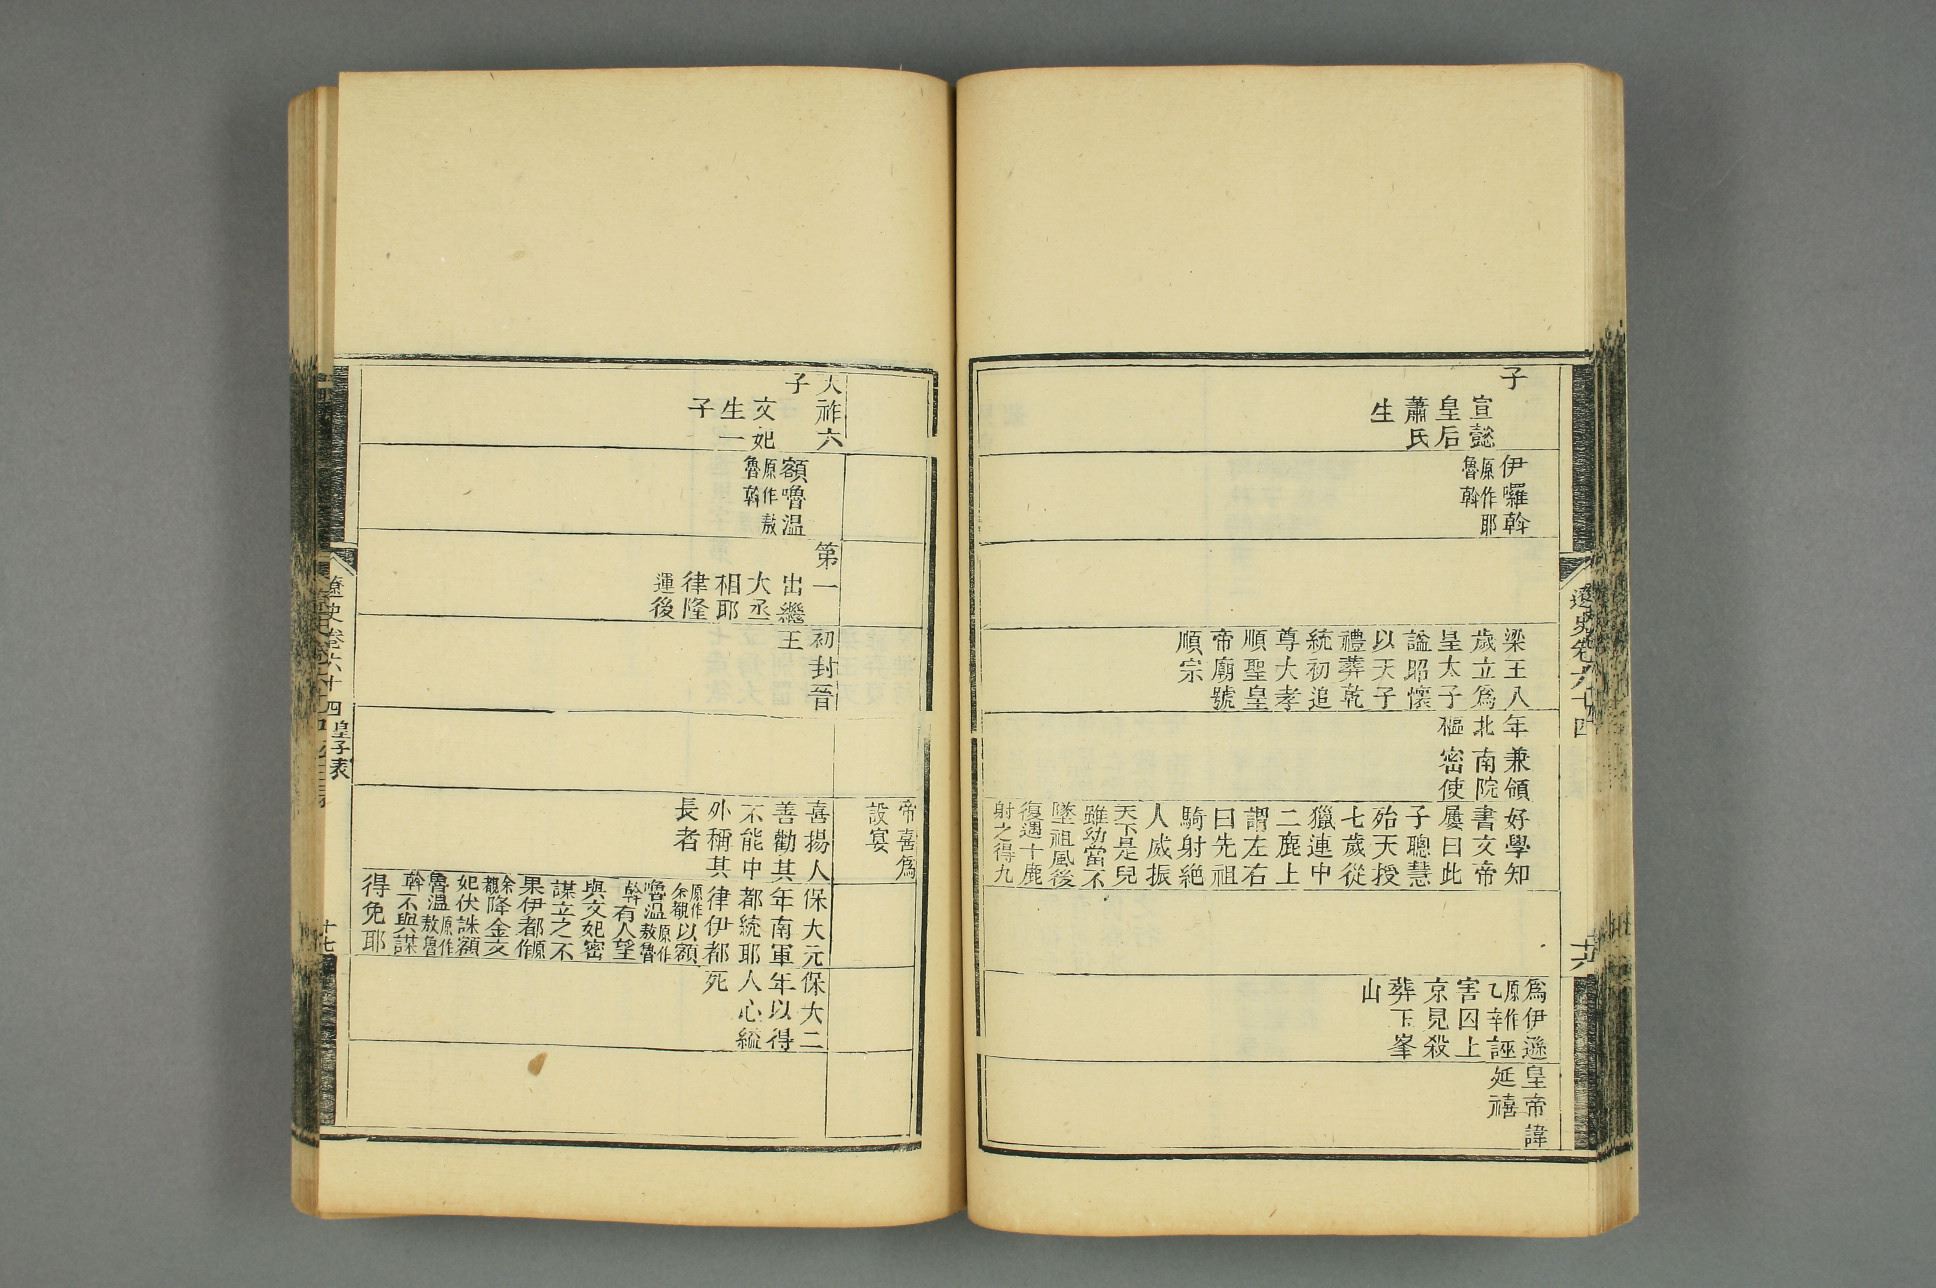 遼史卷六十四
十六
子
宣懿
皇后
蕭氏
生
伊囉斡
原作耶
魯斡
梁王八
歲立爲
皇太子
諡昭懷
以天子
禮葬乾
統初追
尊大孝
順聖皇
帝廟號
順宗
年兼領
北南院
樞密使
好學知
書文帝
屢曰此
子聰慧
殆天授
七歲從
獵連中
二鹿上
謂左右
曰先祖
騎射絕
人威振
天下是兒
雖幼當不
墜祖風後
復遇十鹿
射之得九
爲伊遜
原作乙辛誣
害囚上
京見殺
葬玉峯
山
皇帝諱
延禧
帝喜爲
設宴
天祚六
子
文妃
生一
子
額嚕温
原作敖
魯斡
第一
出繼
大丞
相耶
律隆
運後
初封晉
王
喜揚人
善勸其
不能中
外稱其
長者
保大元
年南軍
都統耶
律伊都
原作余覩以額
嚕温原作敖魯
斡有人望
與文妃密
謀立之不
果伊都原作
余覩降金文
妃伏誅額
魯温原作敖魯
斡不與謀
得免耶
保大二
年以得
人心縊
死
遼史卷六十四 皇子表
十七